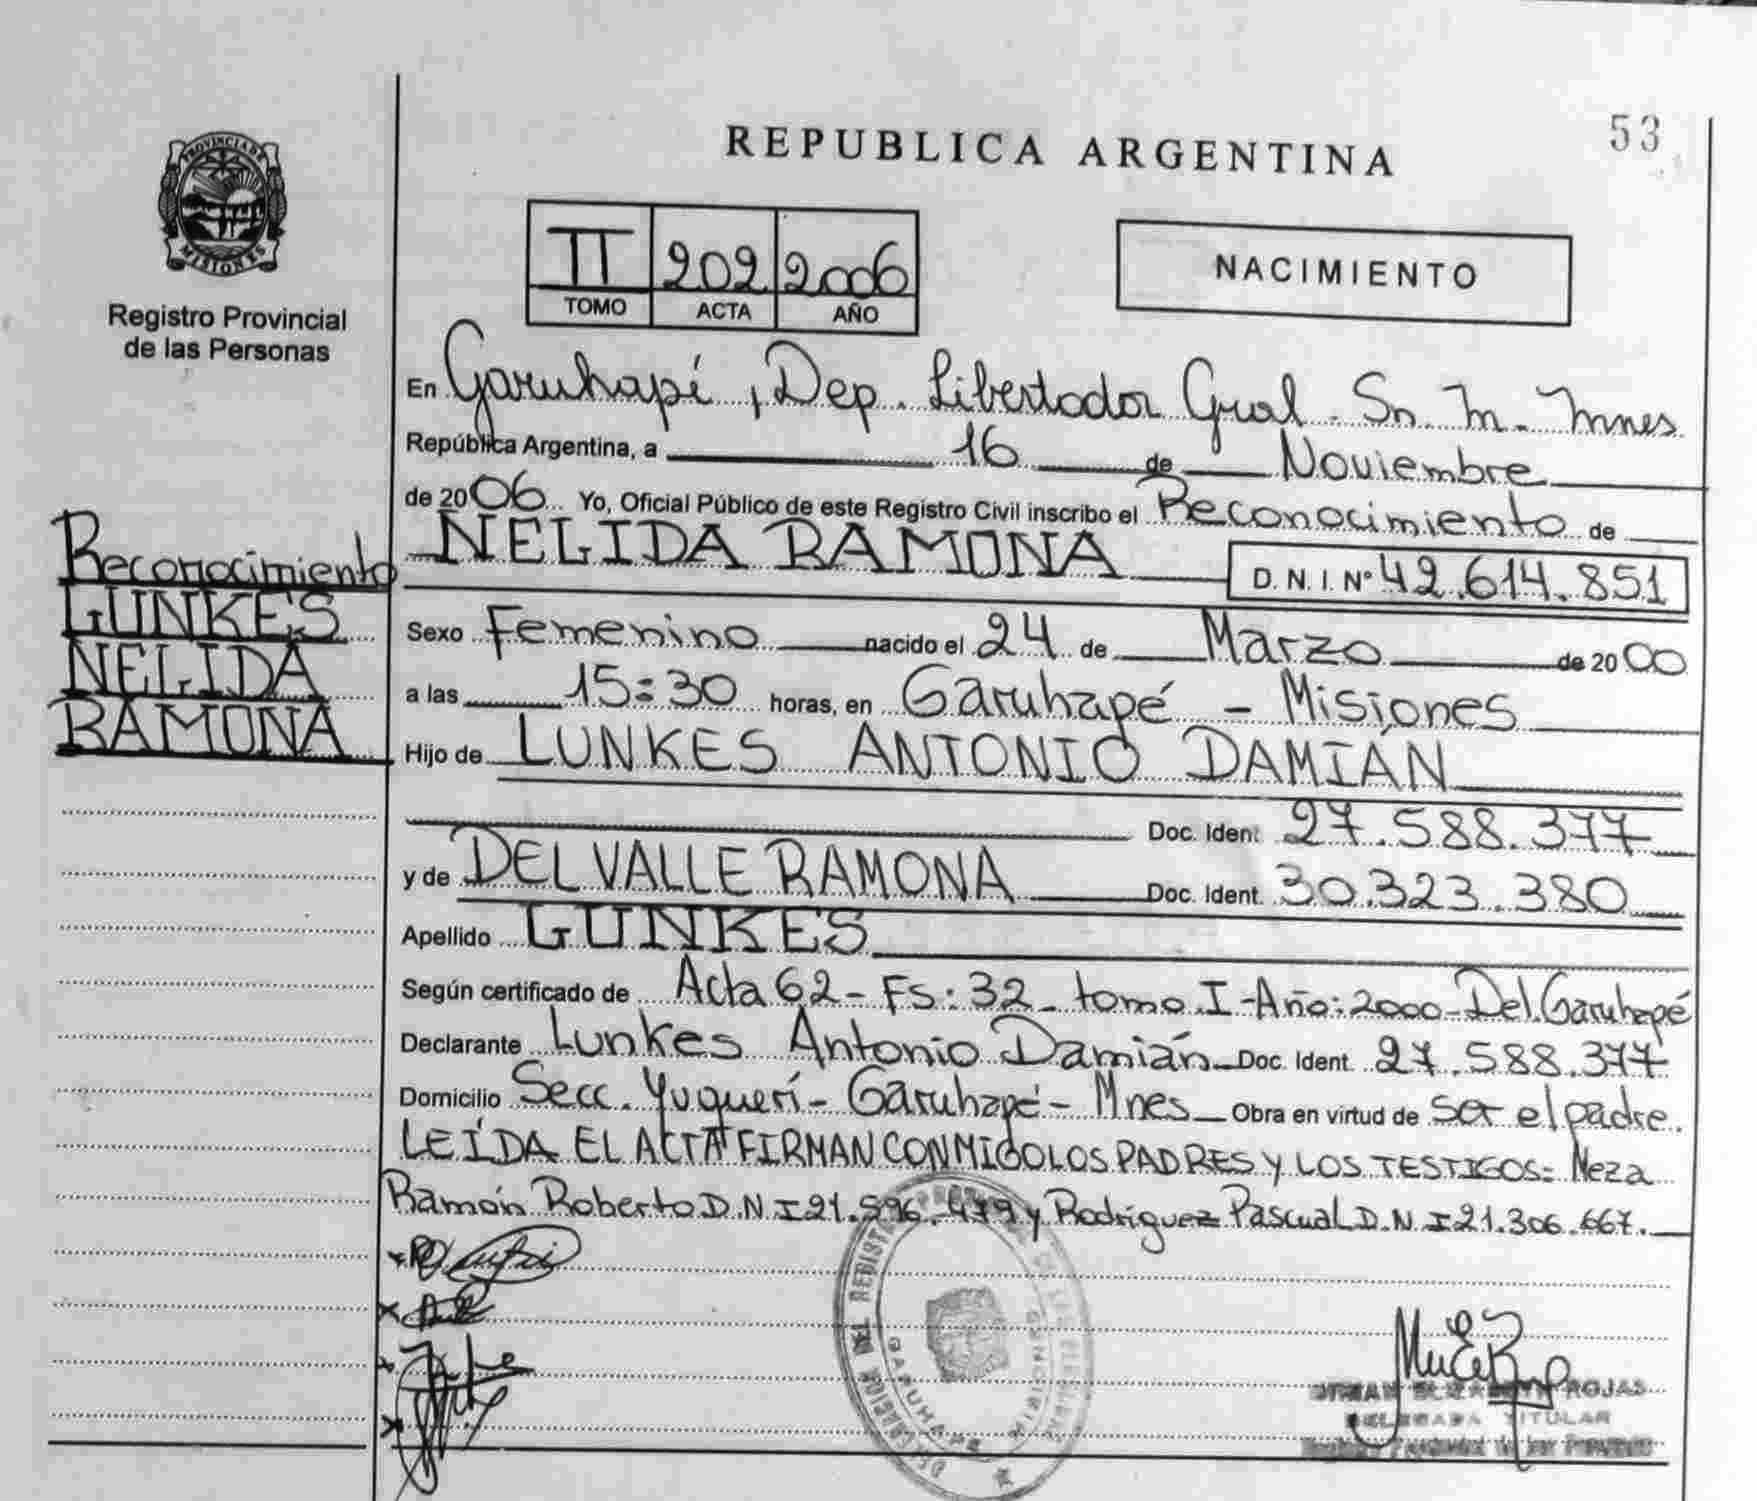 53
REPUBLICA ARGENTINA
PROVINCIA DE
MISIONES
Registro Provincial
de las Personas
II 202 2006
TOMO ACTA AÑO
NACIMIENTO
En Garuhapé, Dep. Libertador Gral. Sn. M. Mnes
República Argentina, a 16 de Noviembre
de 2006 Yo, Oficial Público de este Registro Civil inscribo el Reconocimiento de
NELIDA RAMONA
D. N. I. Nº 42.614.851
Reconocimiento
LUNKES
NELIDA
RAMONA
Sexo Femenino nacido el 24 de Marzo de 2000
a las 15:30 horas, en Garuhapé - Misiones
Hijo de LUNKES ANTONIO DAMIÁN
Doc. Ident 27.588.377
y de DEL VALLE RAMONA Doc. Ident. 30.323.380
Apellido LUNKES
Según certificado de Acta 62 - Fs: 32 - tomo I - Año: 2000 - Del. Garuhapé
Declarante Lunkes Antonio Damián Doc. Ident. 27.588.377
Domicilio Secc. Yuquerí - Garuhapé - Mnes Obra en virtud de ser el padre.
LEÍDA EL ACTA FIRMAN CONMIGO LOS PADRES Y LOS TESTIGOS: Neza
Ramón Roberto D.N.I 21.596.479 y Rodríguez Pascual D.N.I 21.306.667.
DEL REGISTRO
GARUHAPE
MISIONES
ROJAS
DELEGADA TITULAR